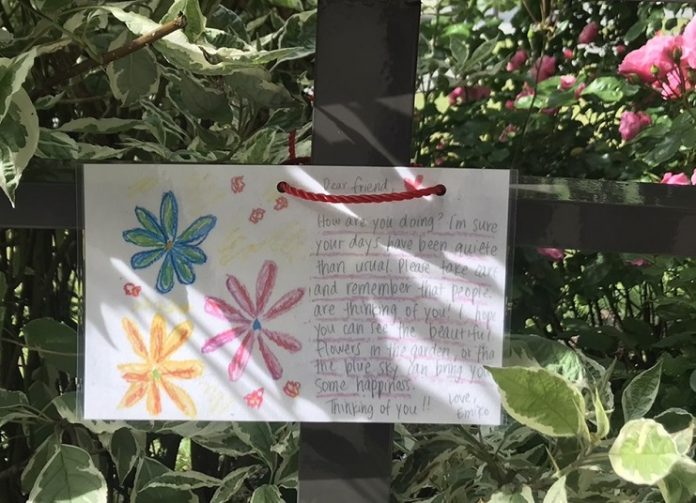 Dear friend,
How are you doing? I'm sure
your days have been quiete
than usual. Please take care
and remember that people
are thinking of you! I hope
you can see the beautiful
flowers in the garden, or tha
the blue sky can bring you
some happiness.
Thinking of you!!
Love,
Emiko